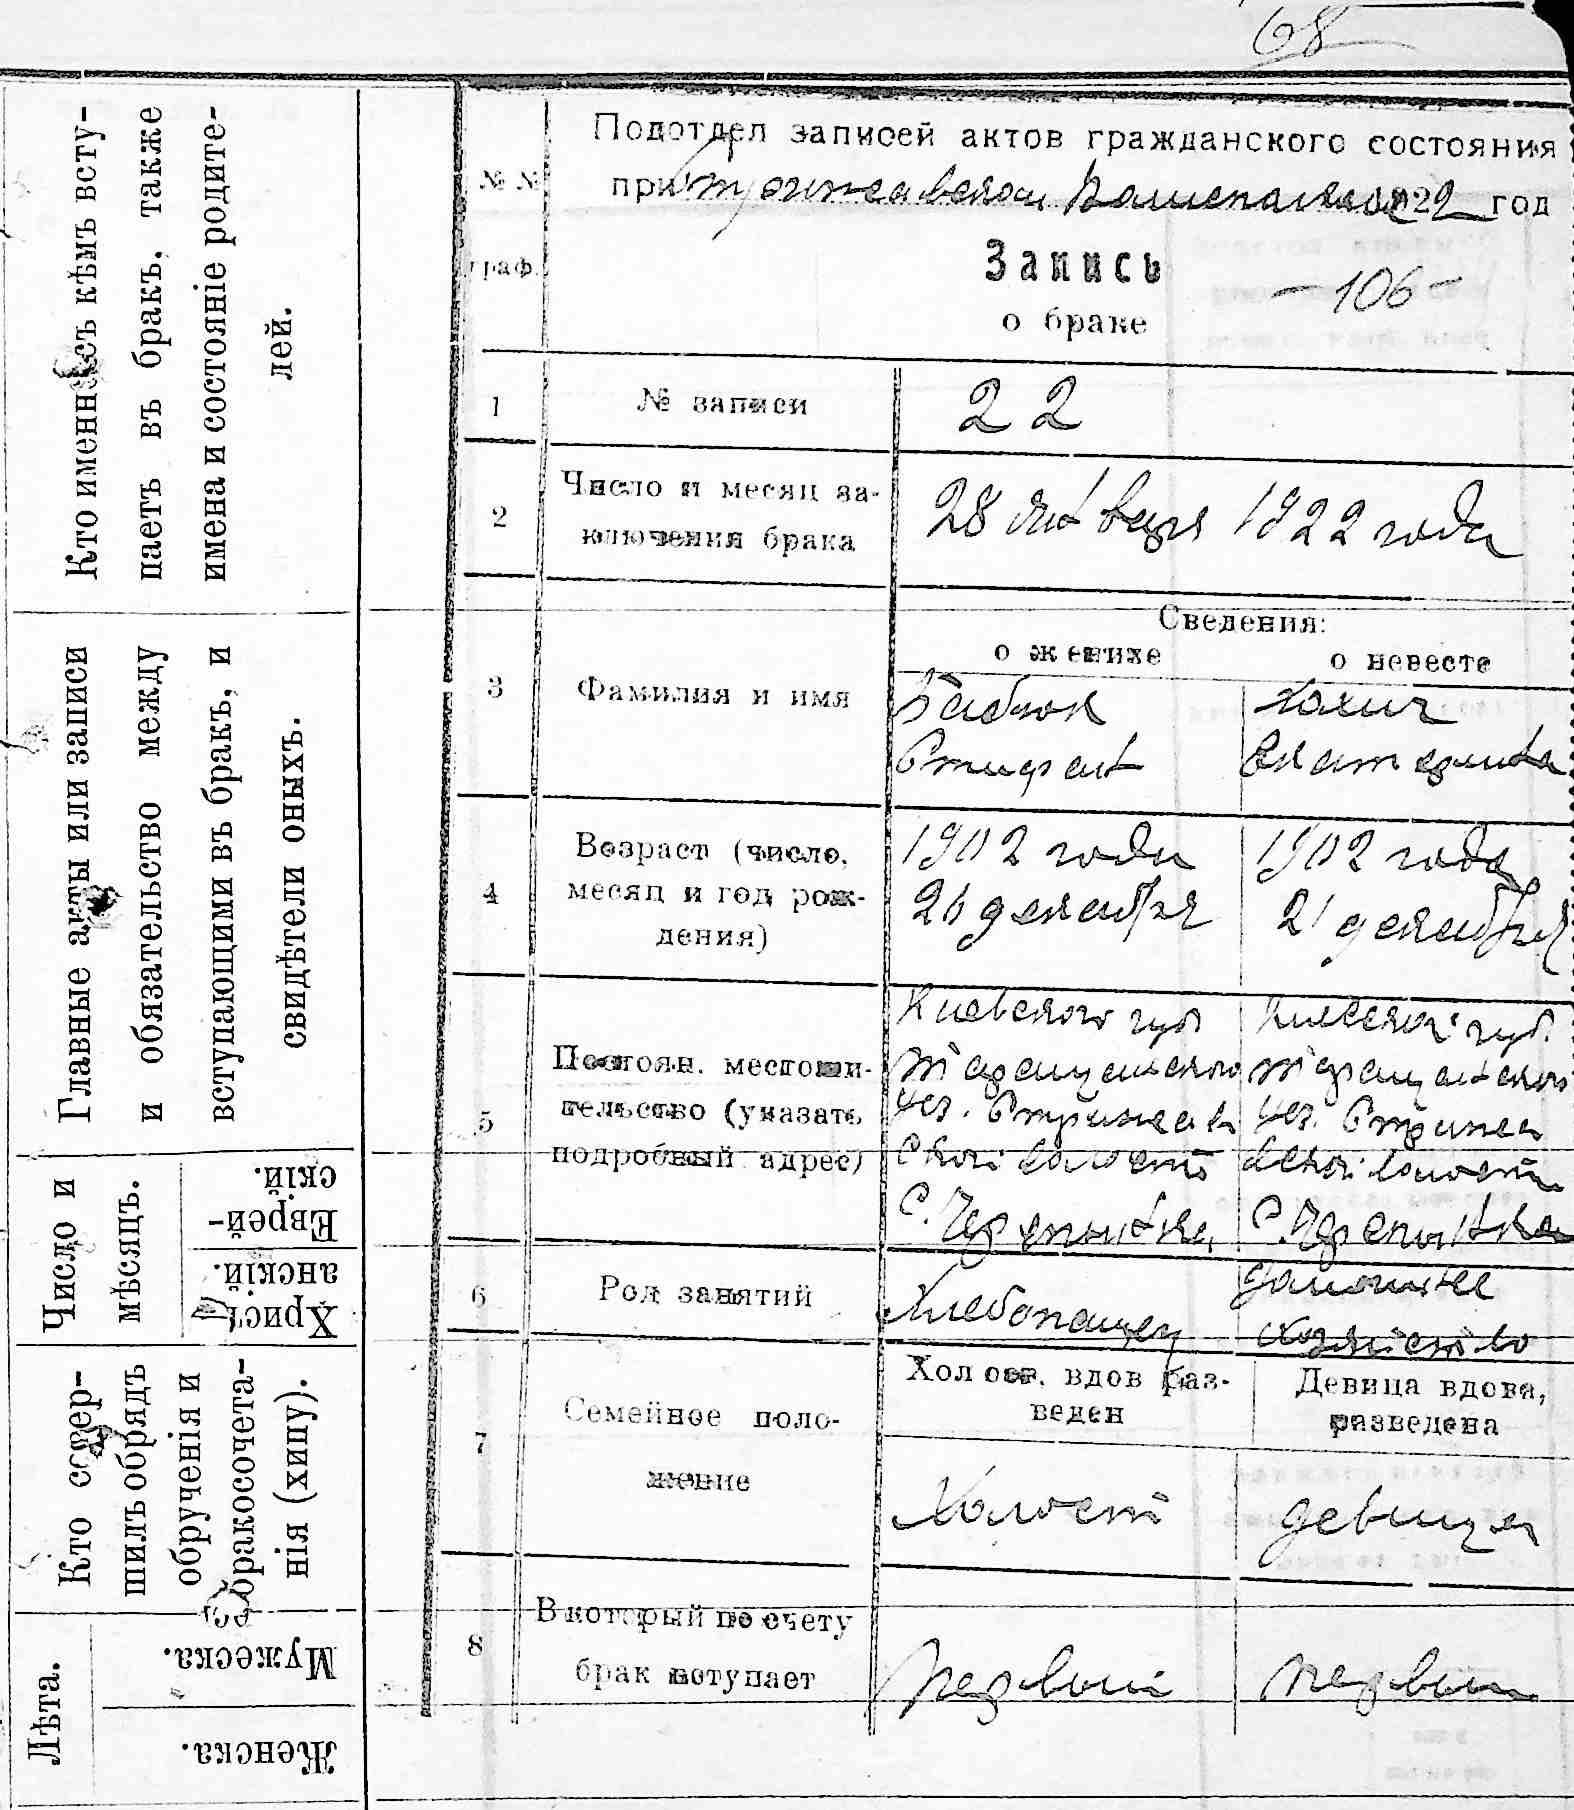 68
Кто именно съ кѣмъ всту-
паетъ въ бракъ, также
имена и состояніе родите-
лей.
Главные акты или записи
и обязательство между
вступающими въ бракъ, и
свидѣтели оныхъ.
Число и
мѣсяцъ.
Еврей-
скій.
Христі-
анскій.
Кто совер-
шилъ обрядъ
обрученія и
бракосочета-
нія (хипу).
Лѣта.
Мужеска.
Женска.
№ №
граф.
Подотдел записей актов гражданского состояния
при Стрижавском Волисполкоме 1922 год
Запись
о браке
- 106 -
1 № записи 22
2 Число и месяц за-
ключения брака
28 января 1922 года
Сведения:
о женихе о невесте
3 Фамилия и имя
Бабюк
Стифан
Хохич
Екатерина
4 Возраст (число,
месяц и год рож-
дения)
1902 года
26 декабря
1902 года
21 декабря
5 Постоян. местожи-
тельство (указать
подробный адрес)
Киевского губ
Таращанского
уез. Стрижав
ской волости
С. Черепинка
Киевской губ.
Таращанского
уез. Стрижа
вской волости
С. Черепинка
6 Род занятий
Хлебопашец
Домашнее
хозяйство
7 Семейное поло-
жение
Холост, вдов раз-
веден
Девица вдова,
разведена
Холост
девица
8 В который по счету
брак вступает
первый
первый